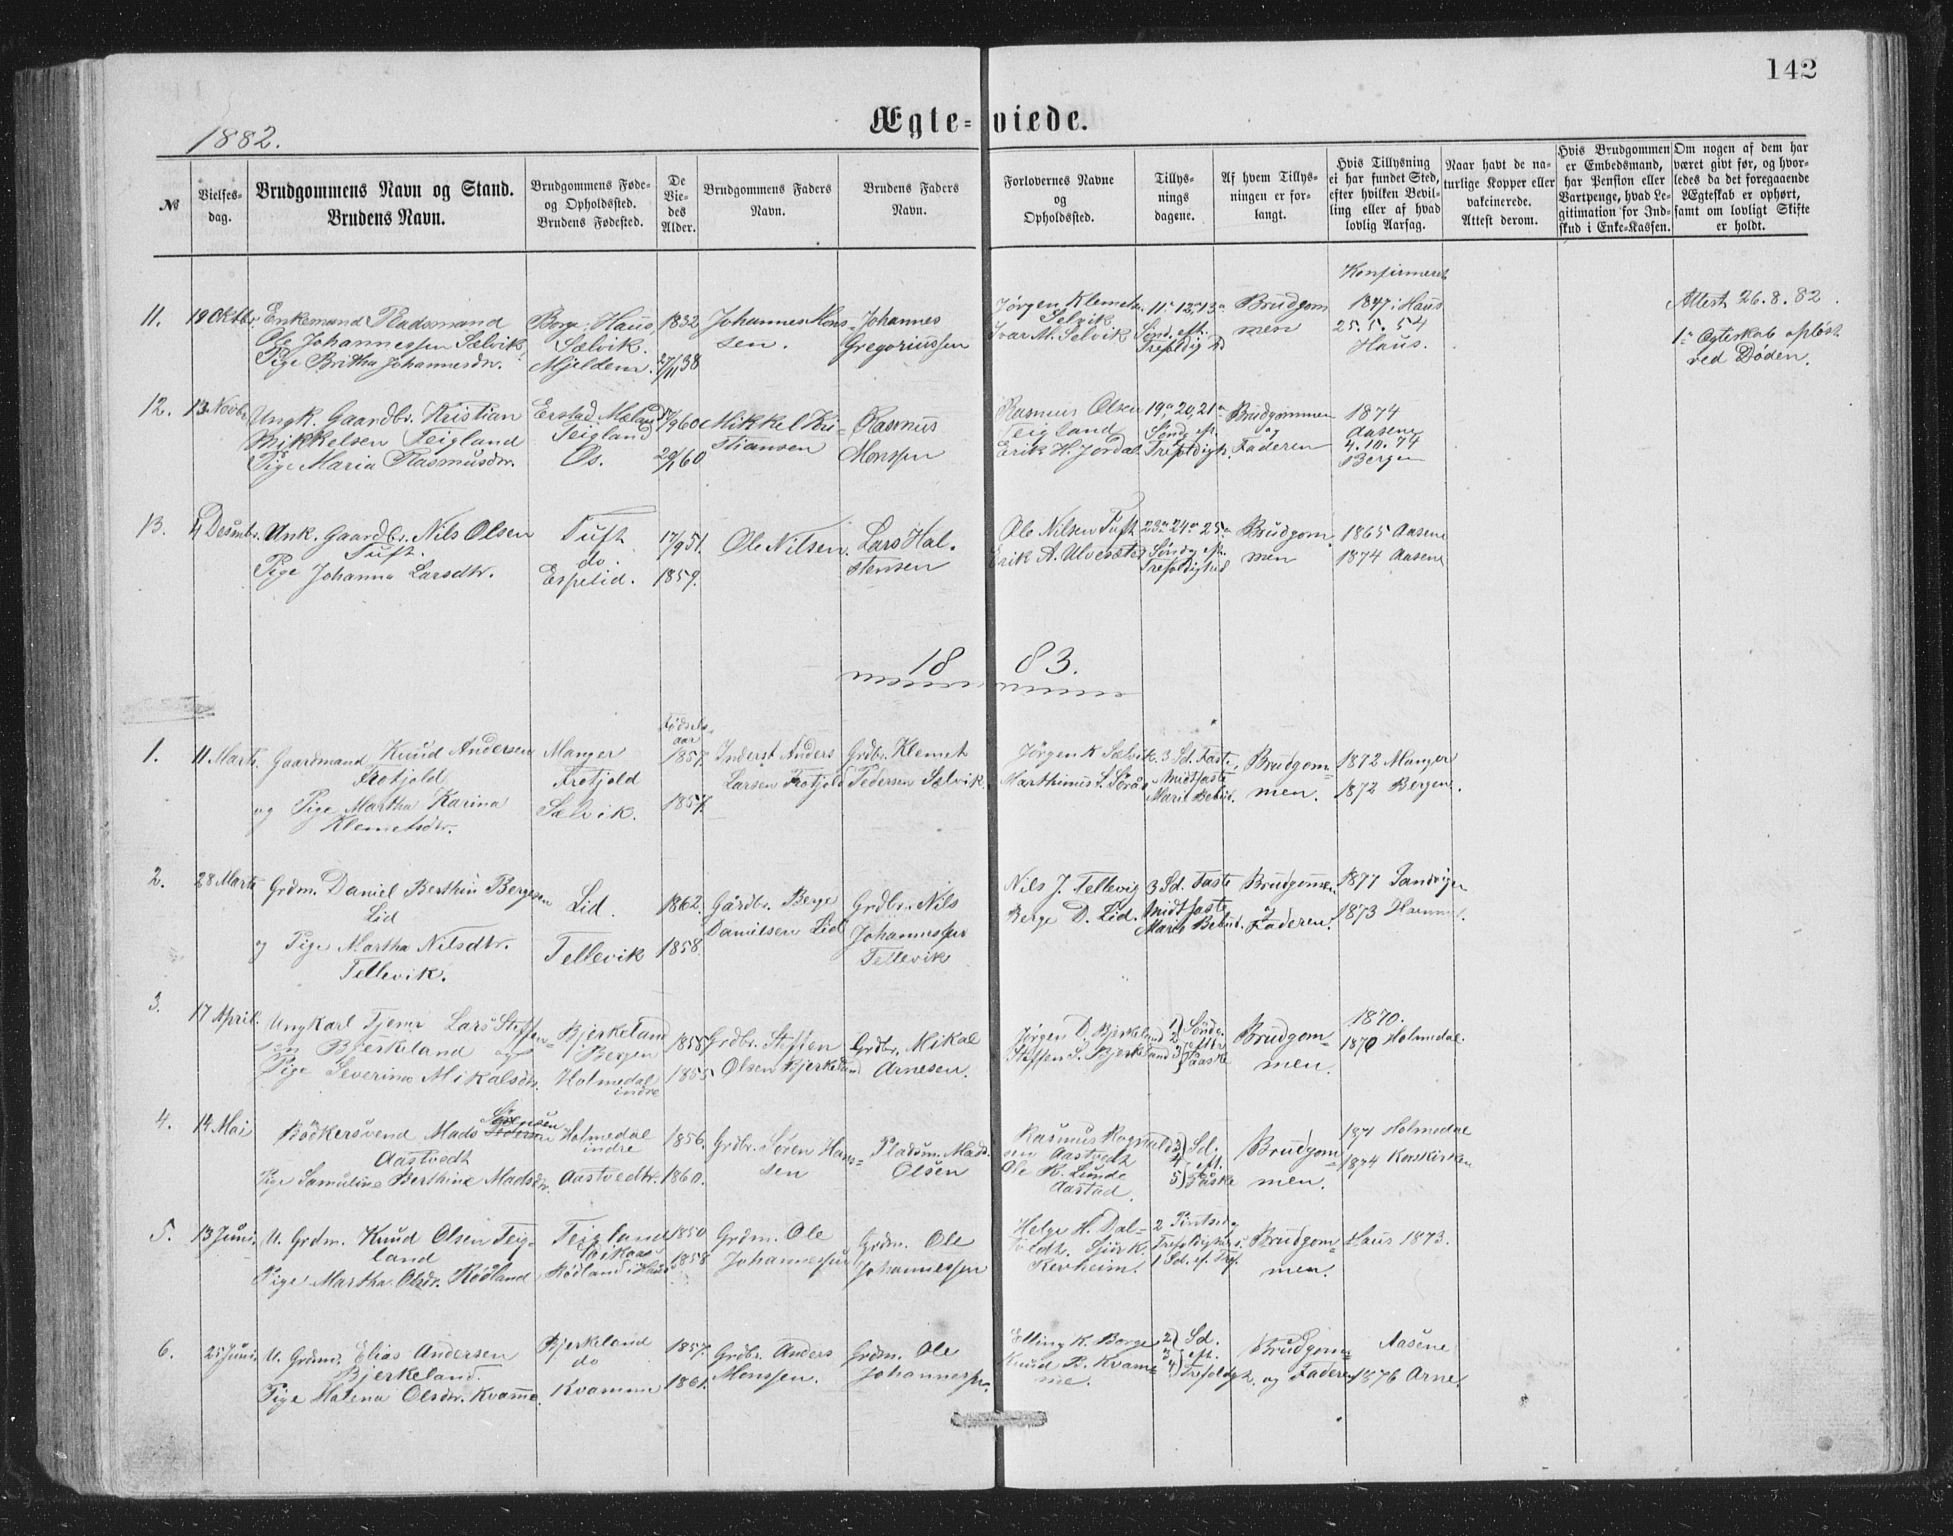 142
Ægte-viede.
1882.
№
Vielses-
dag.
Brudgommens Navn og Stand.
Brudens Navn.
Brudgommens Føde-
og Opholdssted.
Brudens Fødested.
De
Vie-
des
Alder.
Brudgommens Faders
Navn.
Brudens Faders
Navn.
Forlovernes Navne
og
Opholdssted.
Tillys-
nings
dagene.
Af hvem Tillys-
ningen er for-
langt.
Hvis Tillysning
ei har fundet Sted,
efter hvilken Bevil-
ling eller af hvad
lovlig Aarsag.
Naar havt de na-
turlige Kopper eller
vakcinerede.
Attest derom.
Hvis Brudgommen
er Embedsmand,
har Pension eller
Vartpenge, hvad Le-
gitimation for Ind-
skud i Enke-Kassen.
Om nogen af dem har
været givt før, og hvor-
ledes da det foregaaende
Ægteskab er ophørt,
samt om lovligt Skifte
er holdt.
11.
19 Oktbr.
Enkemand Pladsmand
Ole Johannessen Sælvik.
Pige Britha Johannesdr.
Borge i Haus
Sælvik.
Mjeldem.
1832
27/11 38
Johannes Mons-
sen.
Johannes
Gregoriussen
Jørgen Klemets.
Selvik
Ivar M. Selvik
11te 12te 13de
Sønd. eft.
Trefoldigh.
Brudgom
men
Konfirmeret
1847 i Haus
25.5.54
Haus.
Attest 26.8.82.
1te Ægteskab opløst
ved Døden.
12.
13 Novbr.
Ungk. Gaardbr. Kristian
Mikkelsen Teigland
Pige Maria Rasmusdr.
Erstad Meland
Teigland
Os.
/9 60
29/1 60
Mikkel Kri-
stiansen
Rasmus
Monssen
Rasmus Olsen
Teigland
Erik H. Jordal
19de 20, 21de
Sønd. ef.
Trefoldigh.
Brudgommen
og
Faderen
1874
Aasene
4.10.74
Bergen
13.
4 Desembr.
Unk. Gaardbr. Nils Olsen
Tuft.
Pige Johanna Larsdtr.
Tuft
do.
Espelid.
17/9 51.
1859.
Ole Nilsen.
Lars Hal-
stensen
Ole Nilsen Tuft
Erik A. Ulvesæter
23de 24de 25de
Sønd. eft.
Trefoldighed
Brudgom
men
1865 Aasene
1874 Aasene
1883.
1.
11 Marts
Gaardmand Knud Andersen
Frotjold
og Pige Martha Karina
Klemetsdtr.
Manger
Frotjold
Sælvik.
Fødsels-
aar
1857.
1857.
Inderst Anders
Larsen Frotjold
Grdbr. Klemet
Pedersen Sælvik.
Jørgen K Sælvik.
Marthinus S. Sørås
3 Sd. Faste
Midtfaste
Mariæ Bebud.
Brudgom-
men.
1872 Manger
1872 Bergen.
2.
28 Marts
Grdm. Daniel Berthin Bergesen
Lid
og Pige Martha Nilsdtr.
Tellevik.
Lid.
Tellevik
1862.
1858.
Gårdbr. Berge
Danielsen Lid
Grdbr. Nils
Johannessen
Tellevik
Nils J. Tellevig
Berge D. Lid.
3 Sd. Faste
Midtfaste
Mariæ Bebud.
Brudgommen
og
Faderen.
1877 Sandvigen
1873 Hammer.
3.
17 April.
Ungkarl Tjener Lars Steffen-
sen Bjerkeland og
Pige Severina Mikalsdtr.
Bjerkeland
Bergen
Holmedal
indre
1858
1855
Grdbr. Steffen
Olsen Bjerkeland
Grdbr. Mikal
Arnesen.
Jørgen D. Bjerkeland
Steffen S. Bjerkeland
1) Sønd.
2) efter
3) Paaske
Brudgom-
men.
1870.
1870 Holmedal.
4.
14 Mai
Bødkersvend Mads Sørensen
Aastvedt
Pige Samuline Berthine Madsdtr.
Holmedal
indre
Aastvedt.
1856.
1860.
Grdbr. Søren Han-
sen
Pladsm. Mads
Olsen
Rasmus Rognalds
sen Aastvedt
Ole R. Lunde
Aastad.
3) Sd.
4 eft.
5) Påske
Brudgom-
men.
1871 Holmedal
1874 Korskirken
5.
13 Juni.
U. Grdm. Knud Olsen Teig-
land
Pige Martha Olsdr. Rødland
Teigland
Rødland i Haus
1850
1858
Grdm. Ole
Johannessen
Grdm. Ole
Johannessen
Helge H. Dal-
toldt. Sjurk.
Revheim.
2 Pintsedag
Trefoldighed s.
1 Sd. ef. Tref.
Brudgom-
men.
Haus 1873.
6.
25 Juni.
U. Grdm. Elias Andersen
Bjerkeland.
Pige Malena Olsdr. Kvamme.
Bjerkeland
do
Kvamme
1857.
1861.
Grdbr. Anders
Monssen.
Grdm. Ole
Johannessen.
Elling K. Borge
Knud R. Kvam-
me.
2) Sd.
3 eft.
4) Trefoldigh.
Brudgom-
og Faderen
Aasene
1876 Arne.